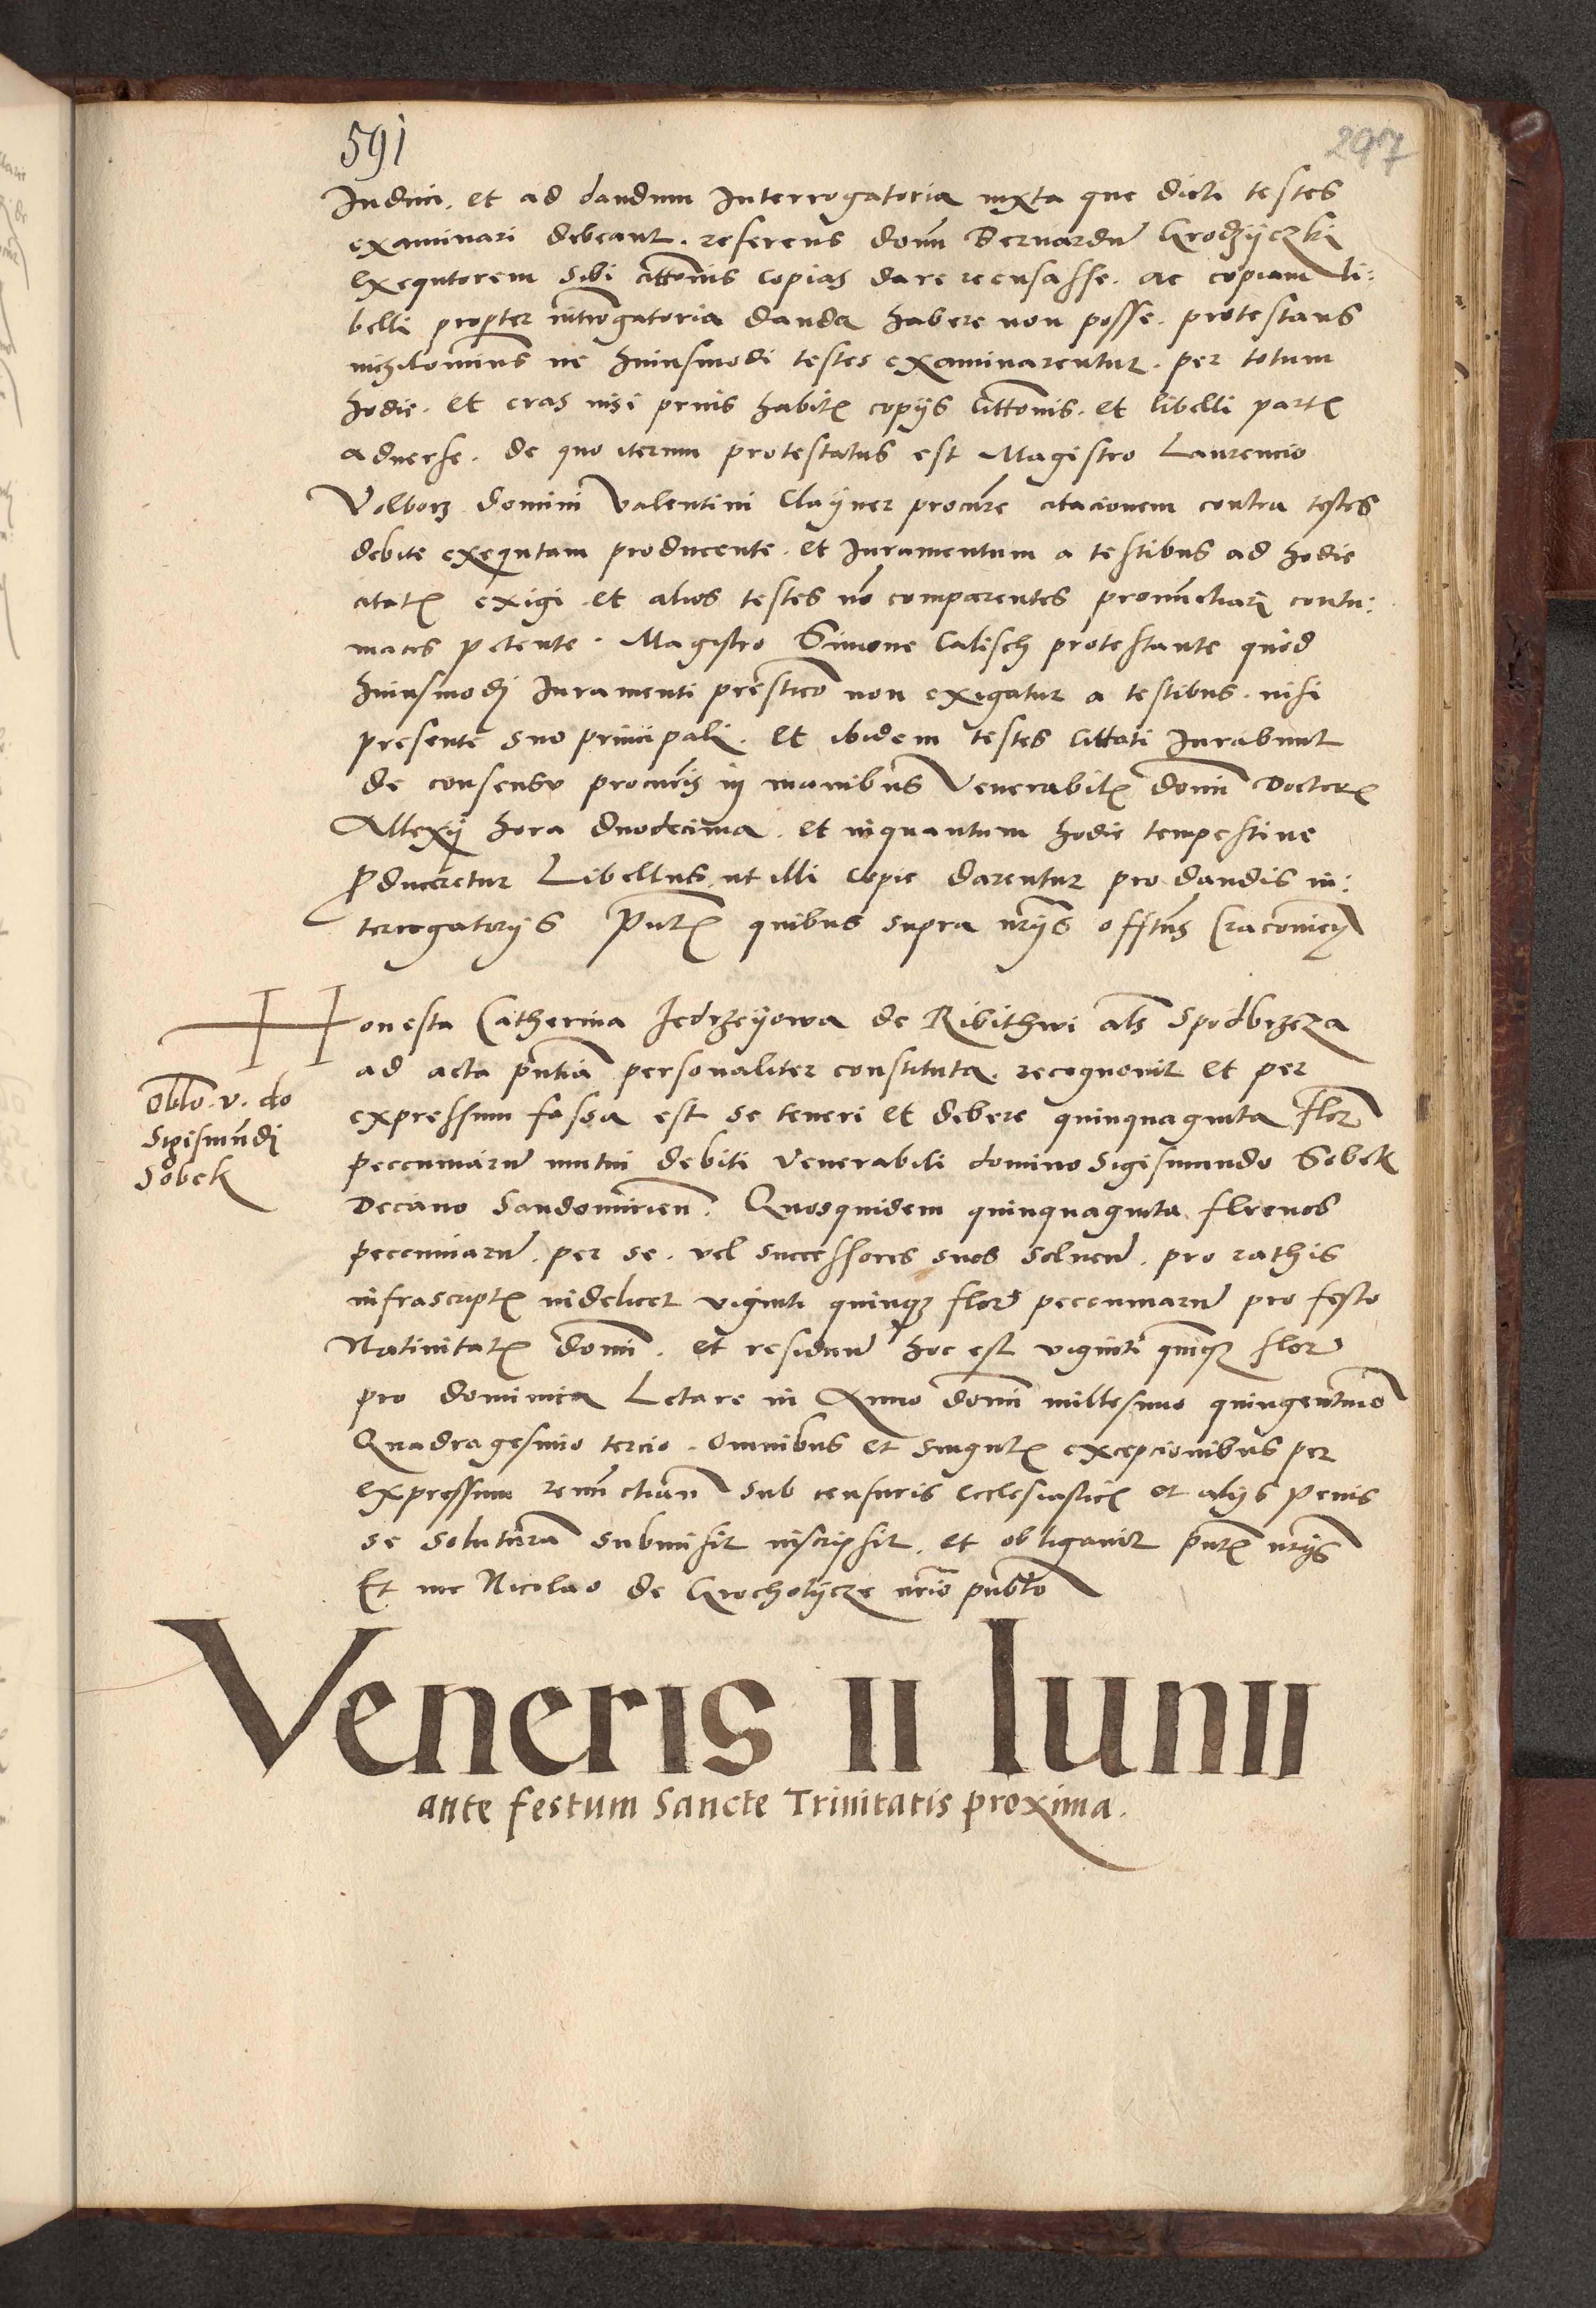 591
297
Induci. et ad dandum Interrogatoria iuxta que dicti testes
examinari debeant. referens domn Bernardu Grodzyczki
exequtorem sibi cittonis copias dare recusasse. ac copiam li:
belli propter introgatoria danda habere non posse. protestans
nichilominus ne huiusmodi testes examinarentur. per totum
hodie. et cras nisi prius habitis copijs cittonis. et libelli partis
aduerse. de quo iterum protestatus est Magistro Laurencio
Volborz domini Valentini Clayner procure citacionem contra testes
debite exequtam producente. et Iuramentum a testibus ad hodie
citatis exigi. et alios testes no comparentes pronunctiari contu:
maces petente. Magistro Simone Calisch protestante quod
huiusmodi Iuramenti presticio non exigatur a testibus. nisi
presente suo principali. Et ibidem testes cittati Iurabunt
de consensu procuris in manibus Venerabilis domi Doctoris
Allexij hora duodecima. et inquantum hodie tempestiue
produceretur Libellus ut illi copie darentur pro dandis in:
terrogatorijs Pntis quibus supra nrijs offitus Cracouien
Honesta Catherina Jedrzeyowa de Ribithwi als Spodbrzeza
ad acta pntia personaliter constituta. recognouit et per
expressum fassa est se teneri et debere quinquaginta flor
pecuniaru mutui debiti Venerabili domino Sigismundo Sobek
Decano Sandomirien. Quosquidem quinquaginta flrenos
pecuniaru. per se. vel successores suos soluere. pro rathis
infrascriptis videlicet viginti quinqz flor pecuniaru pro festo
Natiuitatis domi. et residuu hoc est viginti quinqz flor
pro dominica Letare in Anno domi millesimo quingentmo
Quadragesimo tercio. Omnibus et singulis excepcionibus per
expressum renunctian sub censuris ecclesiasticis et alijs penis
se soluturam submisit inscripsit. et obligauit pntis nrijs
Et me Nicolao de Grocholycze nrio publo
Oblo. v. do
Sigismudi
Sobek
Veneris II Iunii
ante festum Sancte Trinitatis proxima.